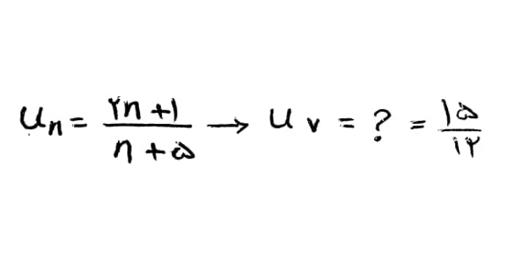 Uₙ = (۲n + ۱) / (n + ۵) → U ۷ = ? = ۱۵ / ۱۲